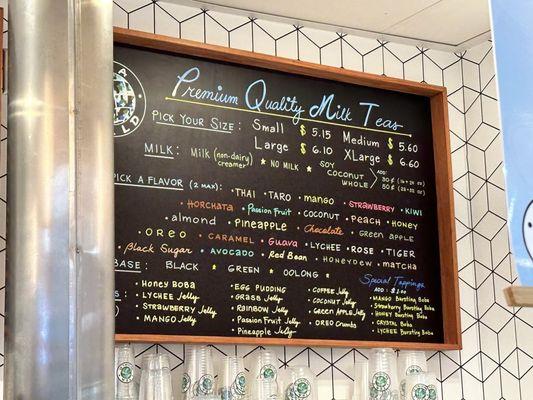 Premium Quality Milk Teas
Pick Your Size: Small $ 5.15 Medium $ 5.60
Large $ 6.10 XLarge $ 6.60
Milk: Milk (non-dairy creamer) * No Milk * Soy Coconut Whole > Add:
Pick a Flavor (2 max): • Thai • Taro • mango • Strawberry • Kiwi
• Horchata • Passion Fruit • Coconut • Peach • Honey
• almond • Pineapple • Chocolate • Green apple
• Oreo • Caramel • Guava • Lychee • Rose • Tiger
• Black Sugar • Avocado • Red Bean • Honeydew • Matcha
Base: Black * Green * Oolong *
• Honey Boba
• Lychee Jelly
• Strawberry Jelly
• Mango Jelly
• Egg Pudding
• Grass Jelly
• Rainbow Jelly
• Passion Fruit Jelly
• Pineapple Jelly
• Coffee Jelly
• Coconut Jelly
• Green Apple Jelly
• Oreo Crumbs
Special Toppings
Add: $ 1.00
• Mango Bursting Boba
• Strawberry Bursting Boba
• Honey Bursting Boba
• Crystal Boba
• Lychee Bursting Boba